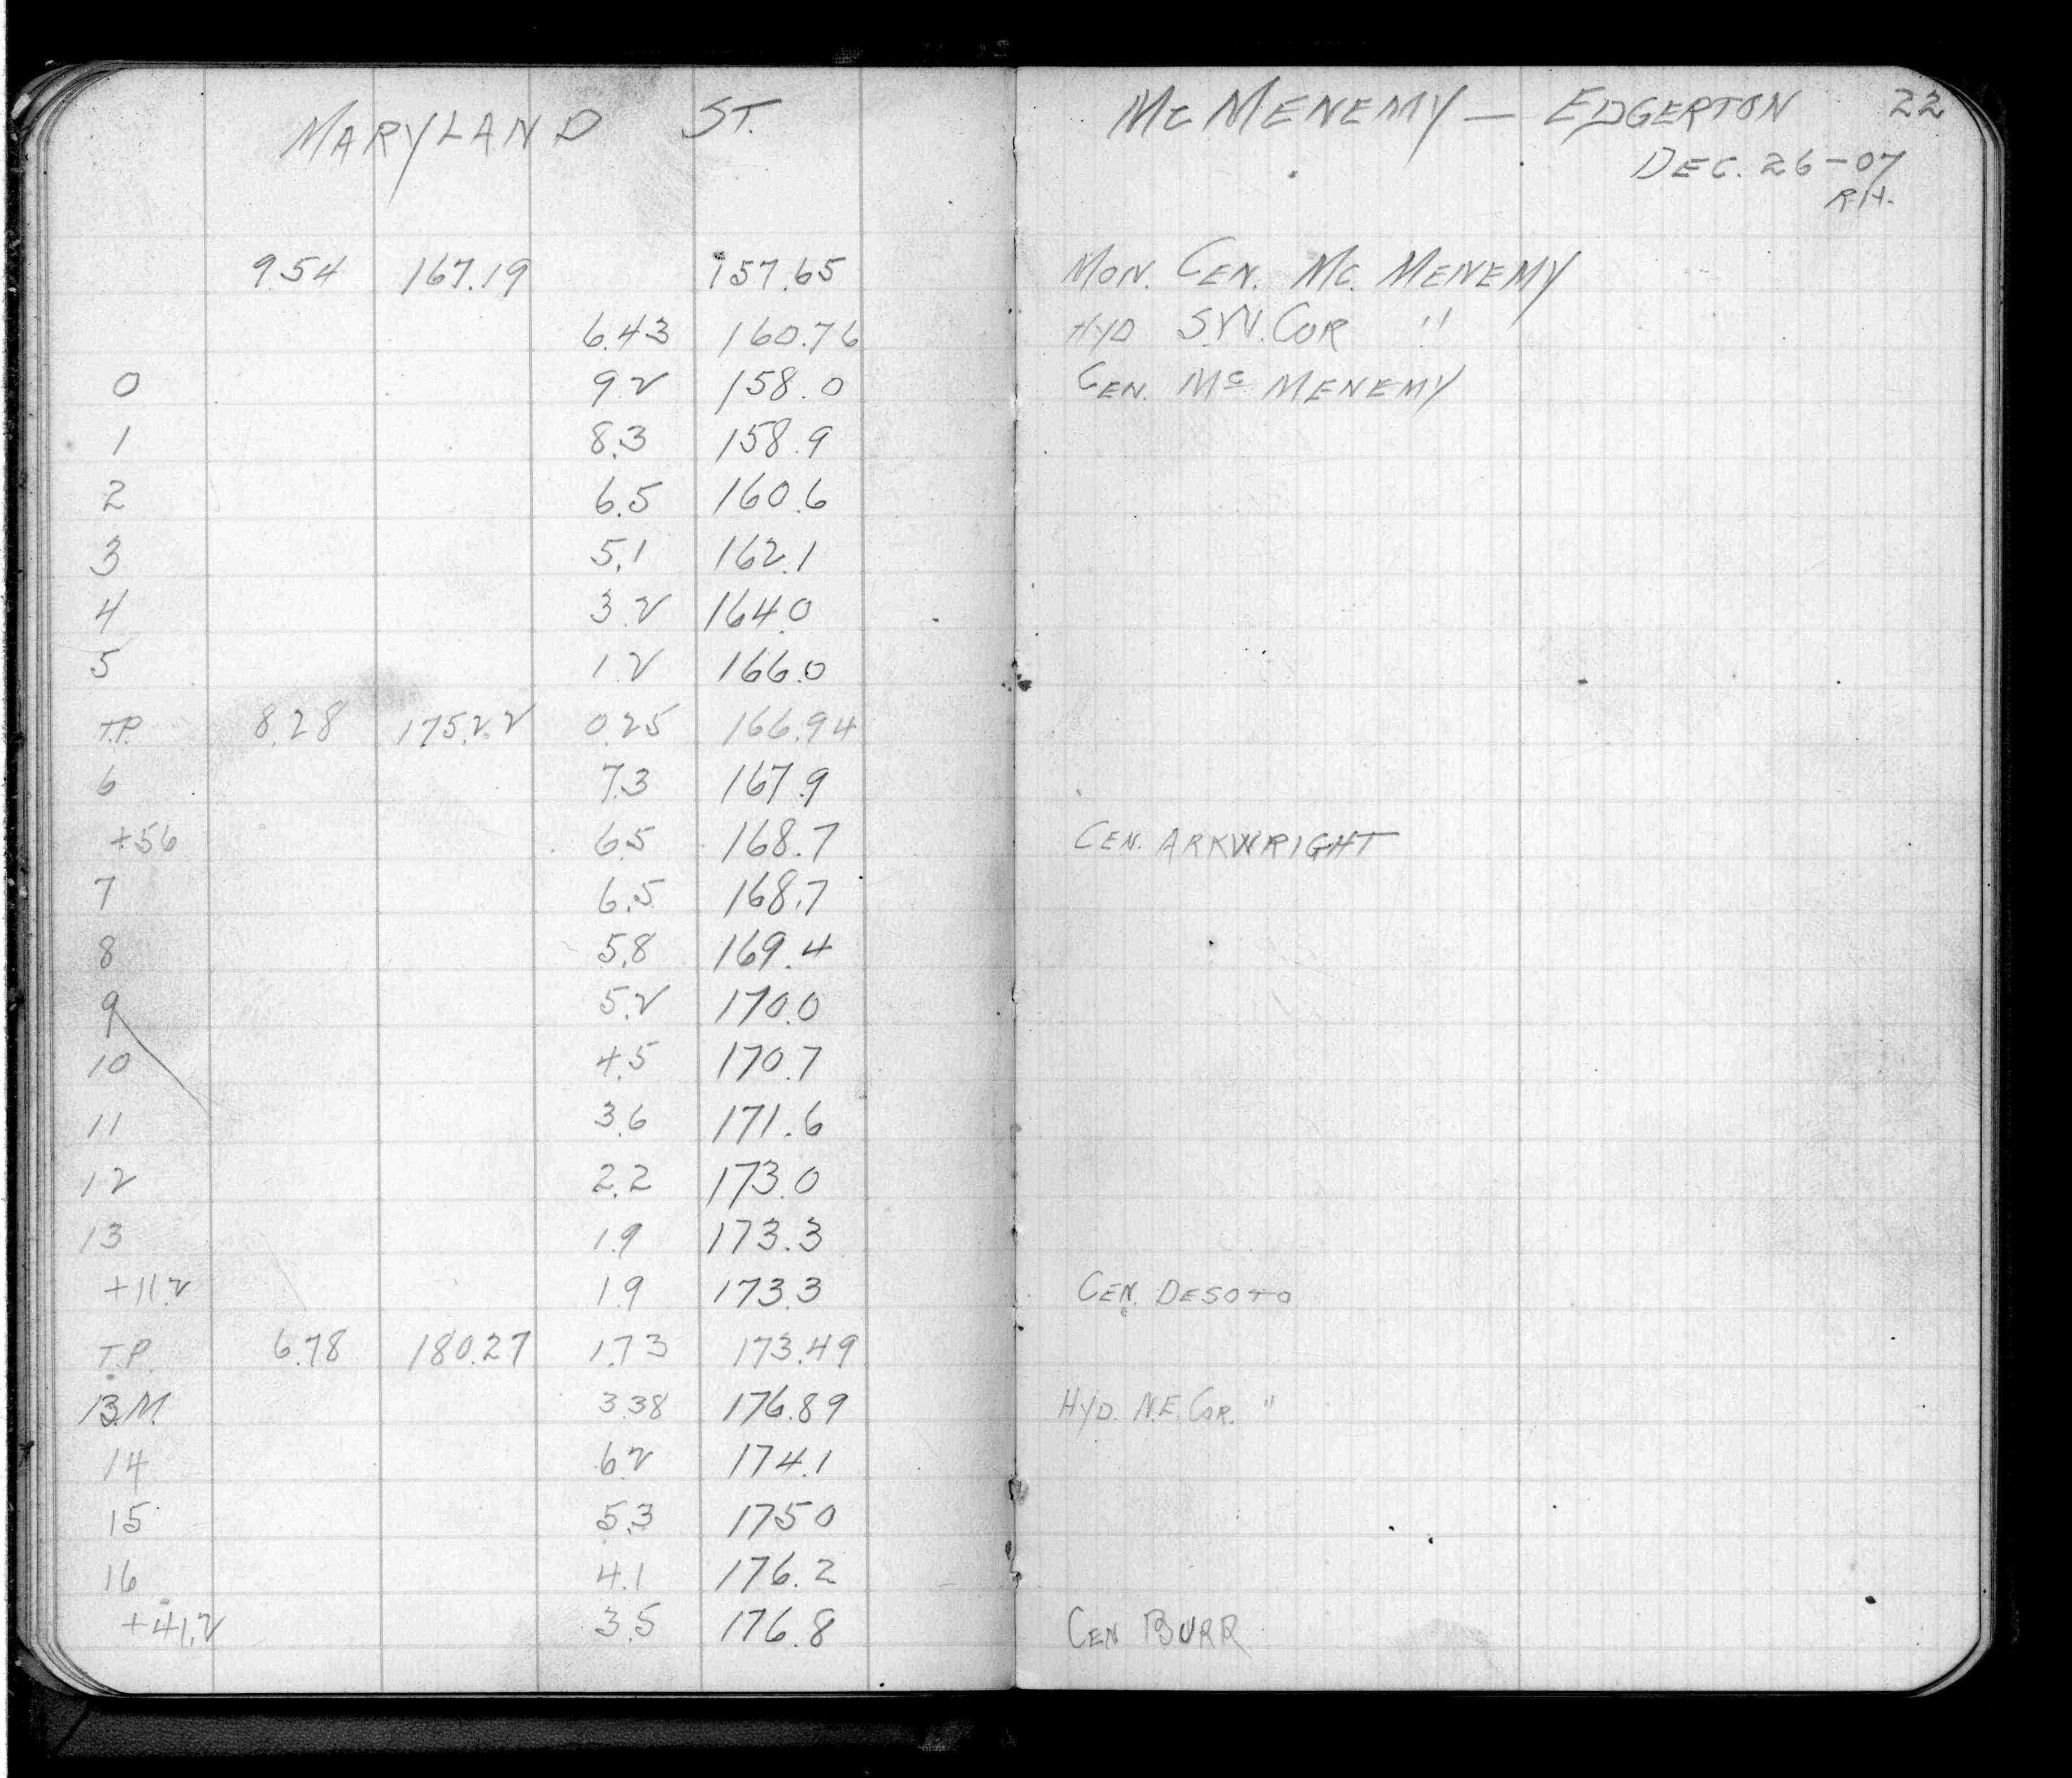 MARYLAND ST.
9.54 167.19 157.65
6.43 160.76
0 9.2 158.0
1 8.3 158.9
2 6.5 160.6
3 5.1 162.1
4 3.2 164.0
5 1.2 166.0
T.P. 8.28 175.22 0.25 166.94
6 7.3 167.9
+56 6.5 168.7
7 6.5 168.7
8 5.8 169.4
9 5.2 170.0
10 4.5 170.7
11 3.6 171.6
12 2.2 173.0
13 1.9 173.3
+11.2 1.9 173.3
T.P. 6.78 180.27 1.73 173.49
B.M. 3.38 176.89
14 6.2 174.1
15 5.3 175.0
16 4.1 176.2
+41.2 3.5 176.8
MC MENEMY — EDGERTON 22
DEC. 26-07
R.H.
MON. CEN. MC. MENEMY
HYD S.W. COR "
CEN. MC MENEMY
CEN. ARKWRIGHT
CEN. DESOTO
HYD. N.E. COR. "
CEN BURR